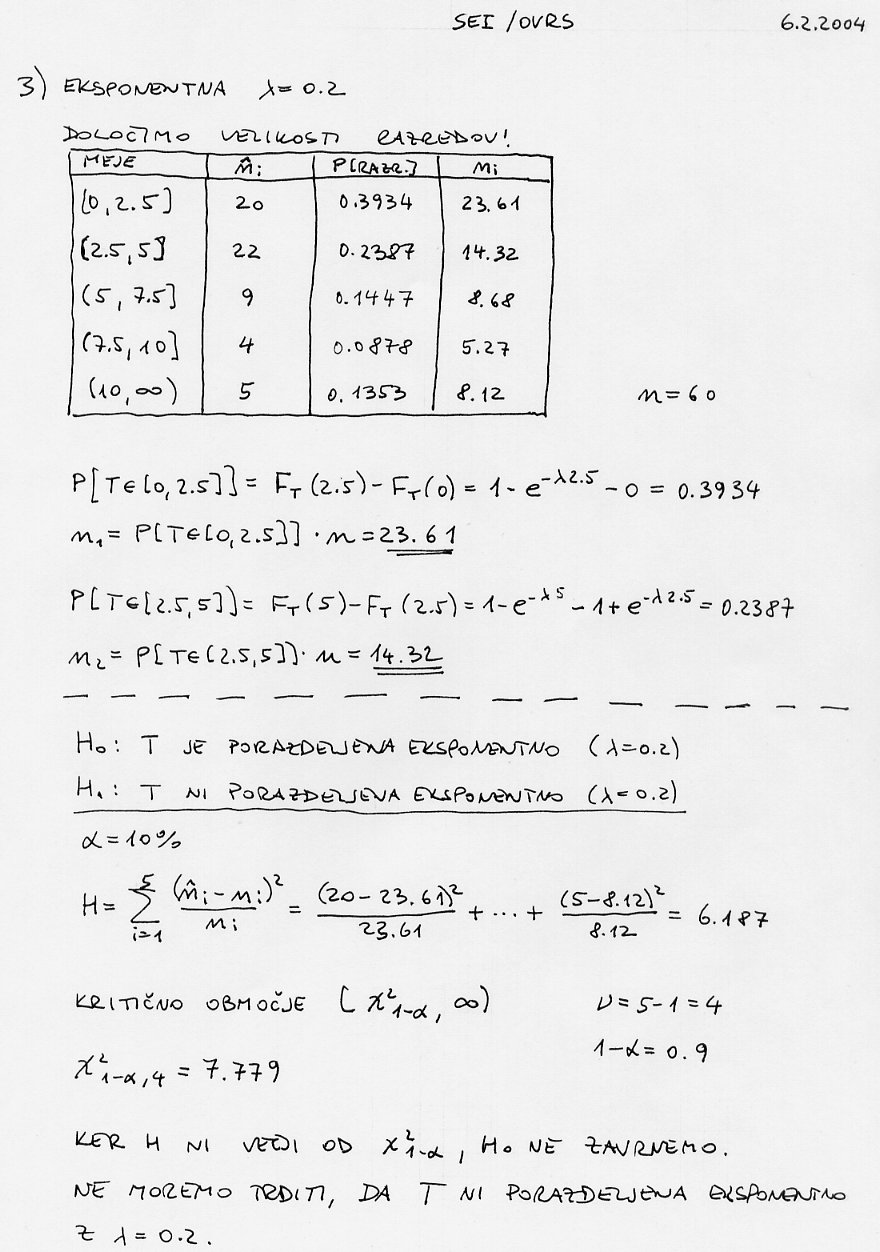 SEI /OVRS 6.2.2004
3) EKSPONENTNA λ=0.2
DOLOČIMO VELIKOSTI RAZREDOV!
MEJE n̂i P[RAZR.] ni
[0,2.5] 20 0.3934 23.61
(2.5,5] 22 0.2387 14.32
(5,7.5] 9 0.1447 8.68
(7.5,10] 4 0.0878 5.27
(10,∞) 5 0.1353 8.12
n=60
P[T∈[0,2.5]] = F_T(2.5) - F_T(0) = 1 - e^{-λ2.5} - 0 = 0.3934
n₁ = P[T∈[0,2.5]] · n = 23.61
P[T∈[2.5,5]] = F_T(5) - F_T(2.5) = 1 - e^{-λ5} - 1 + e^{-λ2.5} = 0.2387
n₂ = P[T∈(2.5,5]] · n = 14.32
H₀: T JE PORAZDELJENA EKSPONENTNO (λ=0.2)
H₁: T NI PORAZDELJENA EKSPONENTNO (λ=0.2)
α=10%
H = ∑_{i=1}^{5} (n̂i - ni)²/ni = (20-23.61)²/23.61 + ... + (5-8.12)²/8.12 = 6.187
KRITIČNO OBMOČJE [χ²_{1-α}, ∞) ν=5-1=4
1-α=0.9
χ²_{1-α,4} = 7.779
KER H NI VEČJI OD χ²_{1-α}, H₀ NE ZAVRNEMO.
NE MOREMO TRDITI, DA T NI PORAZDELJENA EKSPONENTNO
Z λ=0.2.